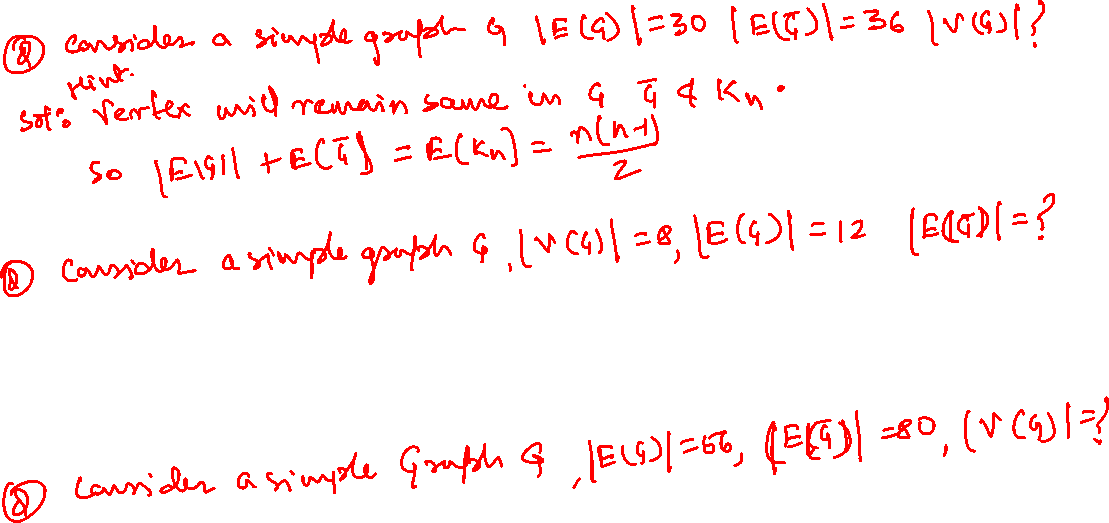 Q Consider a simple graph G |E(G)|=30 |E(G̅)|=36 |V(G)|?
Hint.
Sol: Vertex will remain same in G G̅ & Kn.
So |E|G|| + E(G̅)| = E(Kn) = n(n-1)/2
Q Consider a simple graph G, |V(G)|=8, |E(G)|=12 |E(G̅)|=?
Q Consider a simple Graph G, |E(G)|=56, |E(G̅)|=80, |V(G)|=?